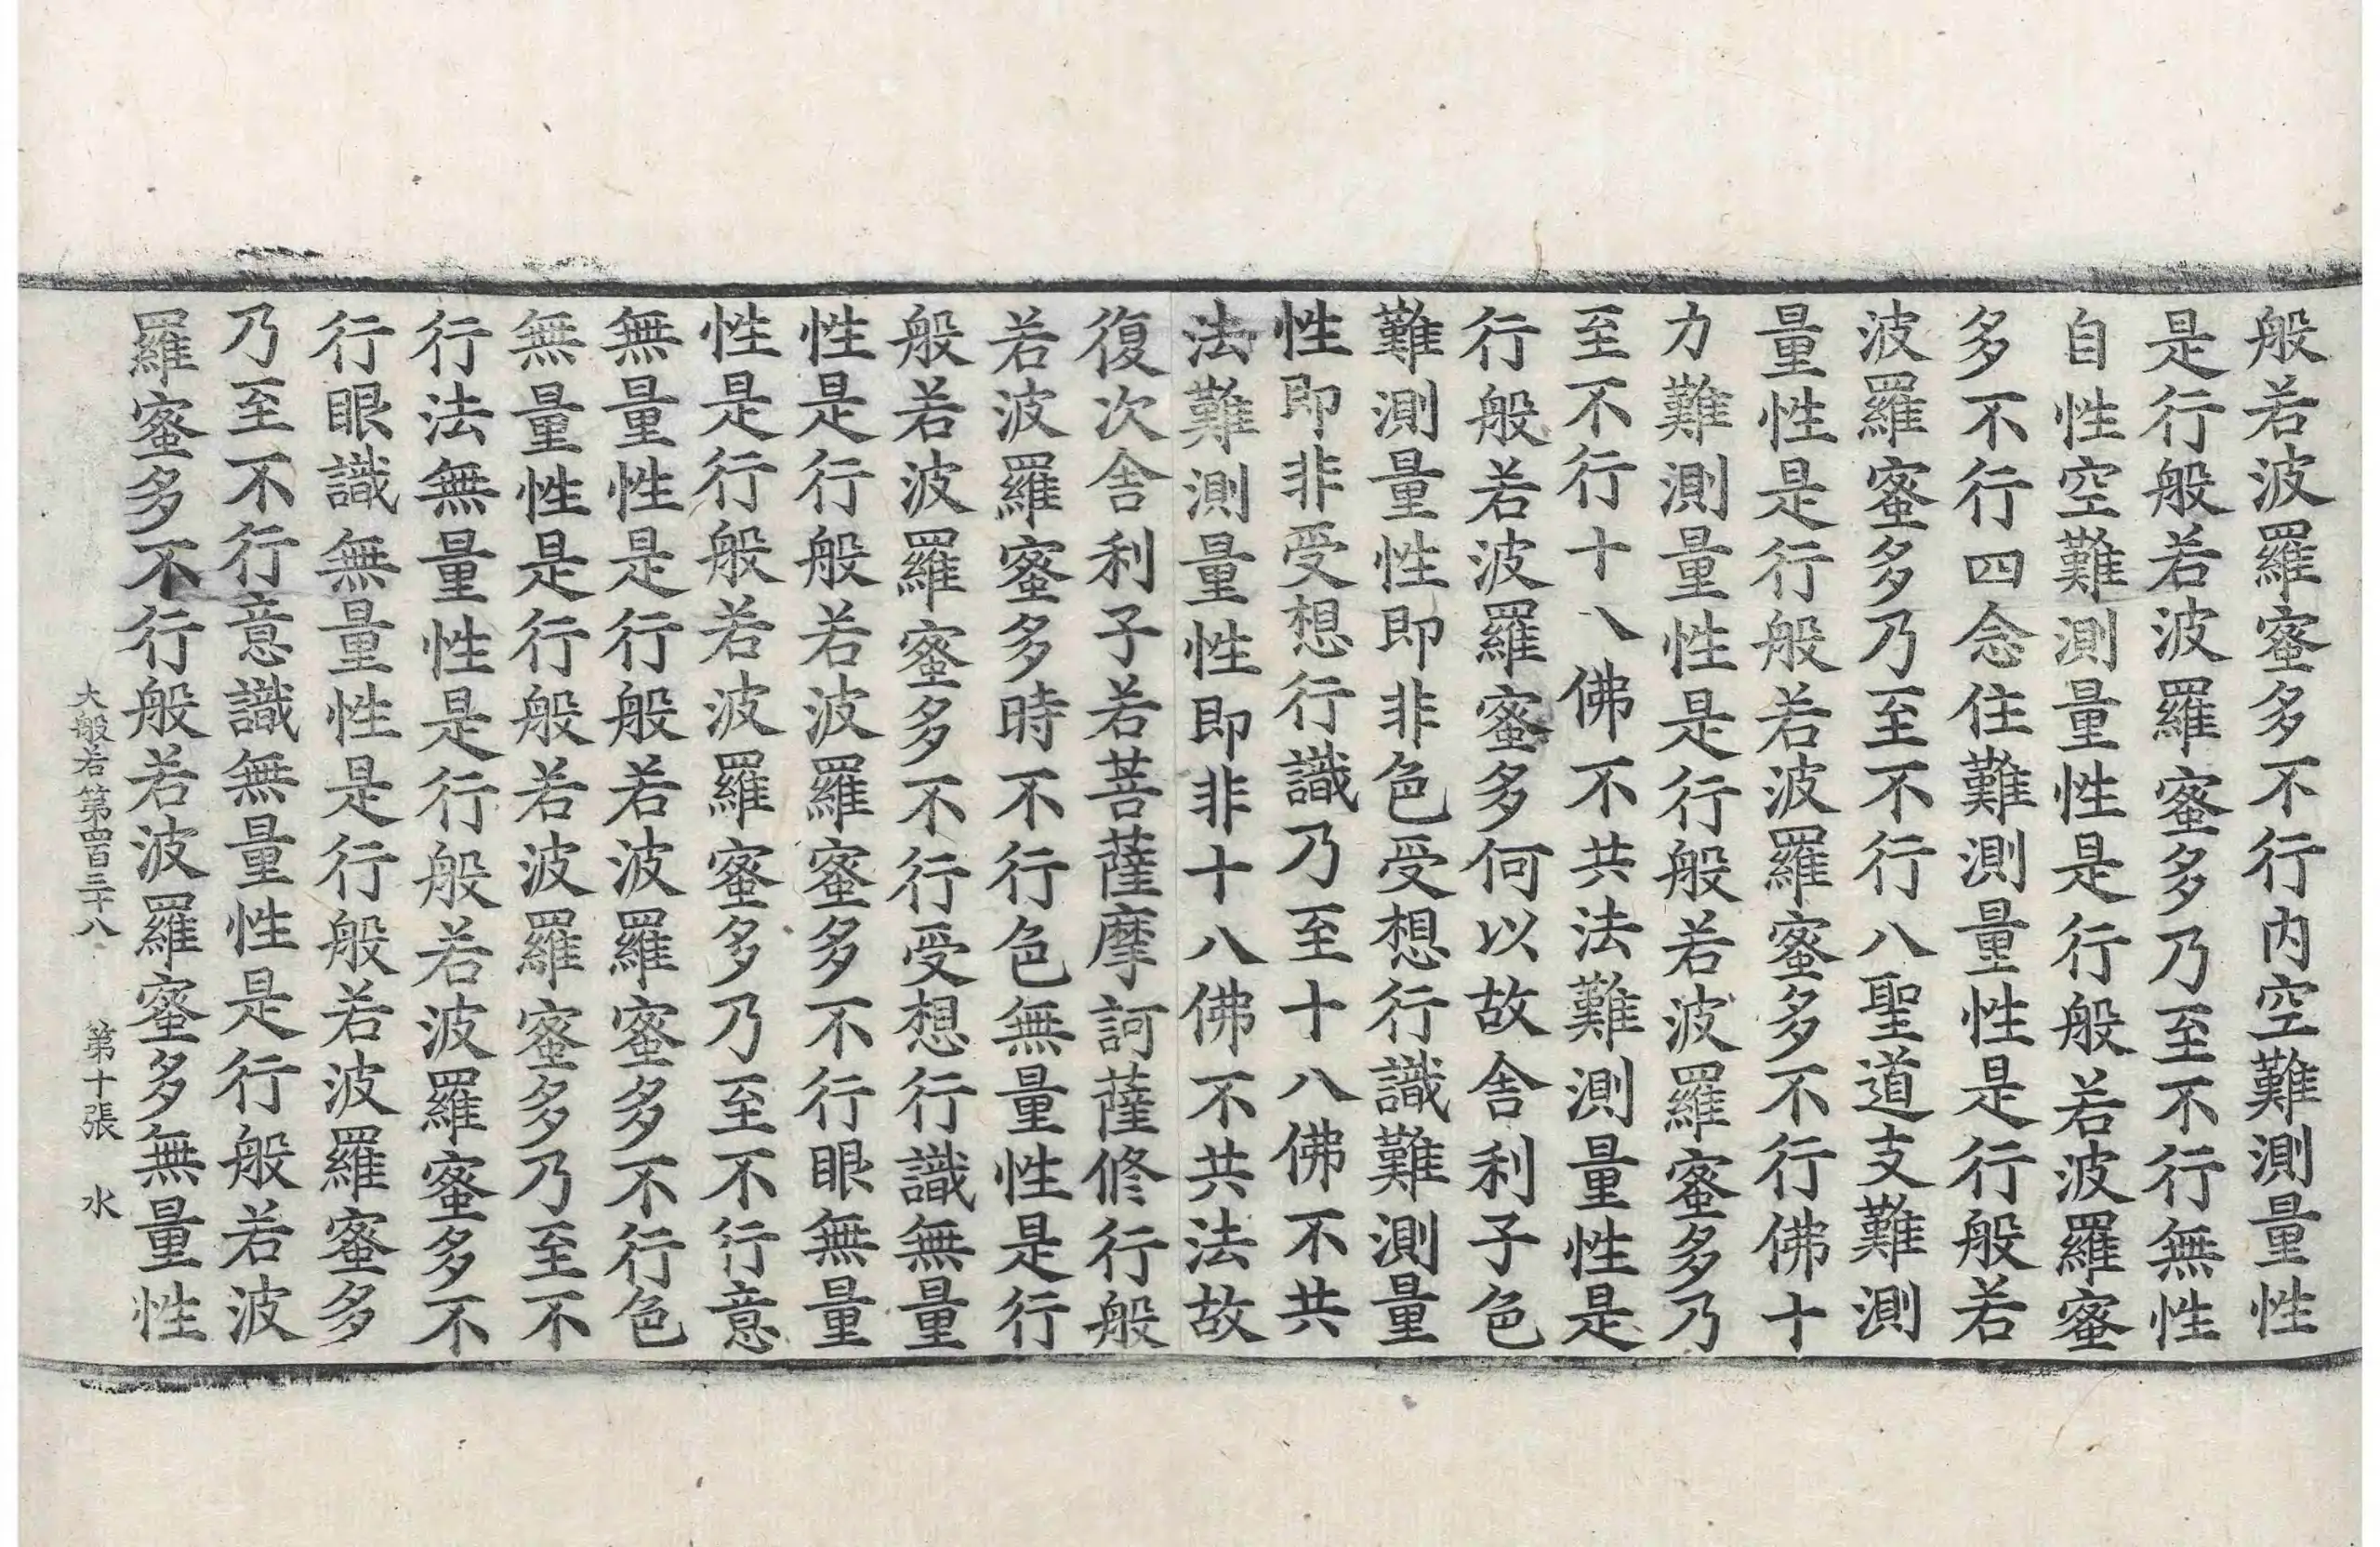 般若波羅蜜多不行內空難測量性
是行般若波羅蜜多乃至不行無性
自性空難測量性是行般若波羅蜜
多不行四念住難測量性是行般若
波羅蜜多乃至不行八聖道支難測
量性是行般若波羅蜜多不行佛十
力難測量性是行般若波羅蜜多乃
至不行十八佛不共法難測量性是
行般若波羅蜜多何以故舍利子色
難測量性即非色受想行識難測量
性即非受想行識乃至十八佛不共
法難測量性即非十八佛不共法故
復次舍利子若菩薩摩訶薩修行般
若波羅蜜多時不行色無量性是行
般若波羅蜜多不行受想行識無量
性是行般若波羅蜜多不行眼無量
性是行般若波羅蜜多乃至不行意
無量性是行般若波羅蜜多不行色
無量性是行般若波羅蜜多乃至不
行法無量性是行般若波羅蜜多不
行眼識無量性是行般若波羅蜜多
乃至不行意識無量性是行般若波
羅蜜多不行般若波羅蜜多無量性
大般若第四百三十八 第十張 水